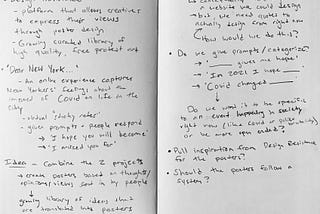 - platform that allows creatives
to express their views
through poster design
- Growing curated library of
high quality, free protest art
• "Dear New York..."
- An online experience captures
New Yorkers' feelings about the
impact of Covid on life in the
city
- virtual 'sticky notes'
- given prompts + people respond
→ 'I hope you will become'
→ 'I missed you for'
Idea - Combine the 2 projects
→ create posters based on thoughts/
opinions/views sent in by people
growing library of ideas that
are translated into posters
a website we could design
→ but we need quotes to
actually design from right now
How would we do this?
• Do we give prompts/categories?
→ '___ gives me hope'
→ 'In 2021 I hope ___'
→ 'Covid changed ___'
Do we want it to be specific
to an event happening in society
right now (like covid or
or be more open ended?
• Pull inspiration from Design Resistance
for the posters?
• Should the posters follow a
system?